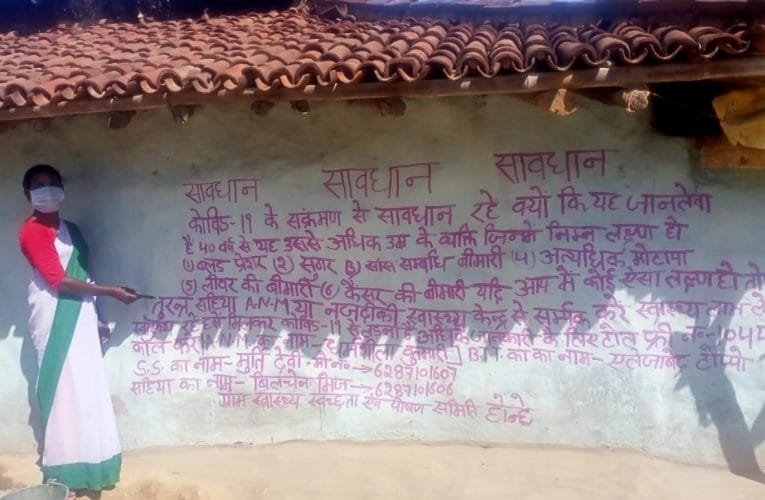 सावधान सावधान सावधान
कोविड-19 के संक्रमण से सावधान रहे क्यों कि यह जानलेवा
है 40 वर्ष से यह उससे अधिक उम्र के व्यक्ति जिनमे निम्न लक्ष्ण हो
(1) ब्लड प्रेशर (2) सुगर (3) सांस सम्बंधि बीमारी (4) अत्यधिक मोटापा
(5) लीवर का बीमारी (6) कैंसर की बीमारी यदि आप मे कोई ऐसा लक्ष्ण हो तो
तुरन्त सहिया A.N.M या नजदीकी स्वास्थ्य केन्द्र से सर्म्पक करे स्वास्थ्य लाभ ले
रहे हमे मिलकर कोविड-19 से लड़ना है अधिक जानकारी के लिए टोल फ्री नं०-104 पर
कॉल करे A.N.M का नाम- कुमारी B.T.T का का नाम- एलिजाबेद टोप्पो
S.S. का नाम- मुर्ति देवी- मो० न०-→6287101607
सहिया का नाम- मिंज-→6287101606
ग्राम स्वास्थ्य स्वच्छता एवं पोषण समिति होन्हे